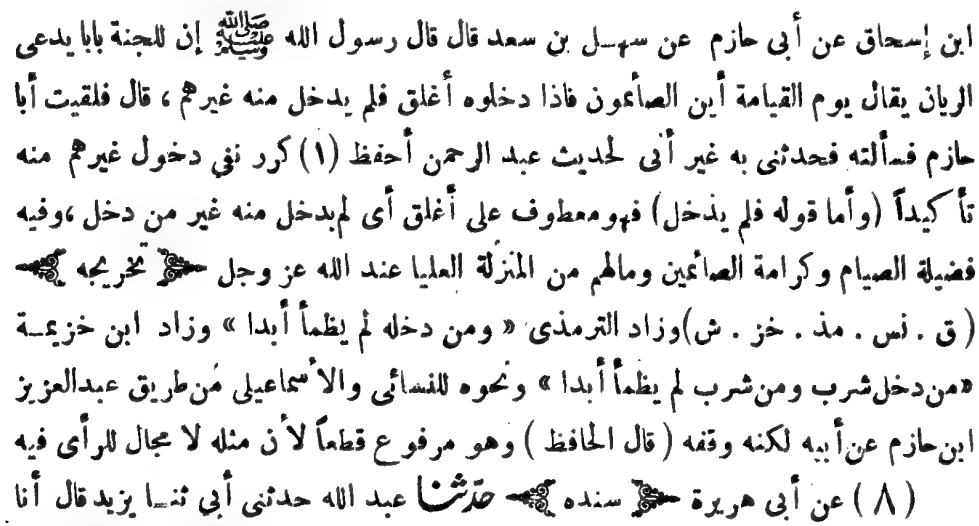 ابن إسحاق عن أبى حازم عن سهل بن سعد قال قال رسول الله ﷺ إن للجنة بابا يدعى
الريان يقال يوم القيامة أين الصائمون فاذا دخلوه أغلق فلم يدخل منه غيرهم ، قال فلقيت أبا
حازم فسألته فحدثنى به غير أنى لحديث عبد الرحمن أحفظ (١) كرر نفى دخول غيرهم منه
تأكيداً (وأما قوله فلم يدخل) فهو معطوف على أغلق أى لم يدخل منه غير من دخل ،وفيه
فضيلة الصيام وكرامة الصائمين ومالهم من المنزلة العليا عند الله عز وجل ﴿ تخريجه ﴾
( ق . نس . مذ . خز . ش) وزاد الترمذى « ومن دخله لم يظمأ أبدا » وزاد ابن خزيمة
«من دخل شرب ومن شرب لم يظمأ أبدا » ونحوه للنسائى والأسماعيلى من طريق عبدالعزيز
ابن حازم عن أبيه لكنه وقفه ( قال الحافظ ) وهو مرفوع قطعاً لأن مثله لا مجال للرأى فيه
(٨) عن أبى هريرة ﴿ سنده ﴾ حدّثنا عبد الله حدثنى أبى ثنا يزيد قال أنا